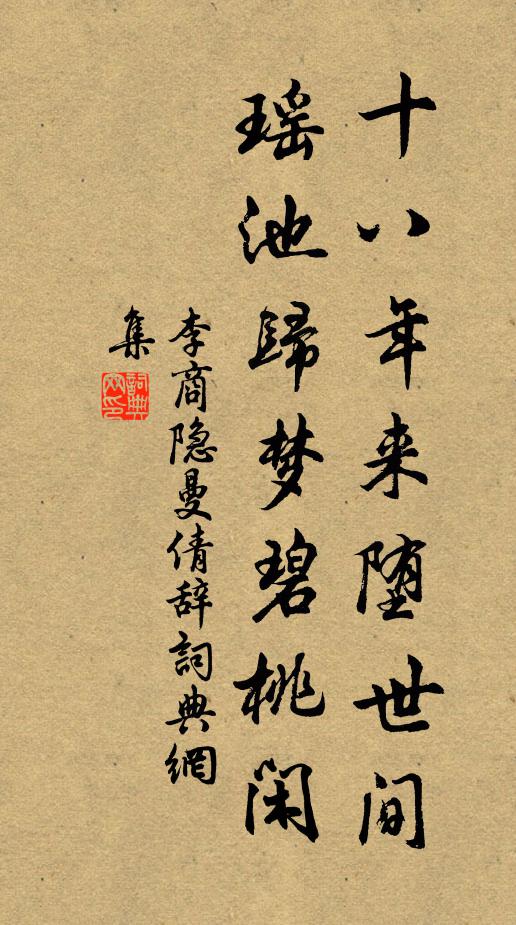 十八年来堕世间
瑶池歸梦碧桃闲
李商隐曼倩辞詞典網
集
詞典